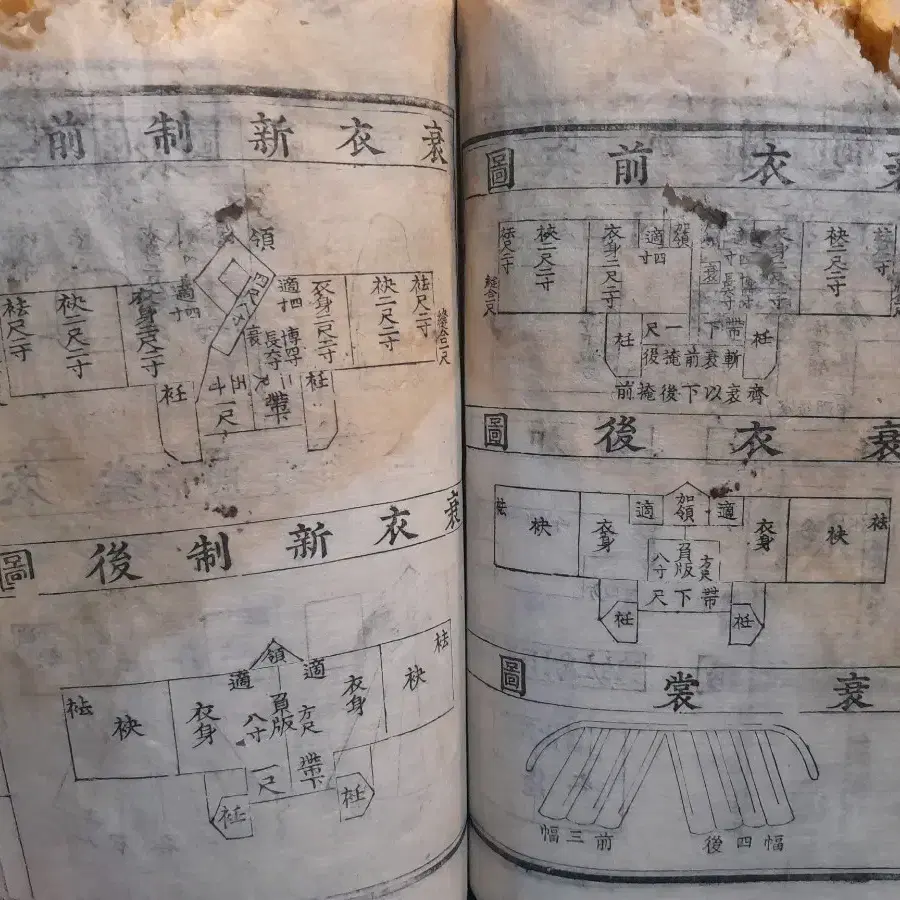 衰衣前圖
袂二尺二寸
衣身二尺二寸
衰
領
適四寸
衣身二尺二寸
袂二尺二寸
袪尺二寸
縫合一尺
衽
帶下一尺
衽
斬衰前掩後
齊衰以下後掩前
衰衣後圖
袪
袂
衣身
適
加領
適
衣身
袂
袪
負版方尺八寸
帶下尺
衽
衽
衰裳圖
後四幅
前三幅
衰衣新制前
領
縫合一尺
袪尺二寸
袂二尺二寸
衣身二尺二寸
適四寸
博四寸
衰
適四寸
衣身二尺二寸
袂二尺二寸
袪尺二寸
衽
帶下
一尺
衽
衰衣新制後圖
領
袪
袂
衣身
適
適
衣身
袂
袪
負版方尺八寸
帶下
尺
衽
衽